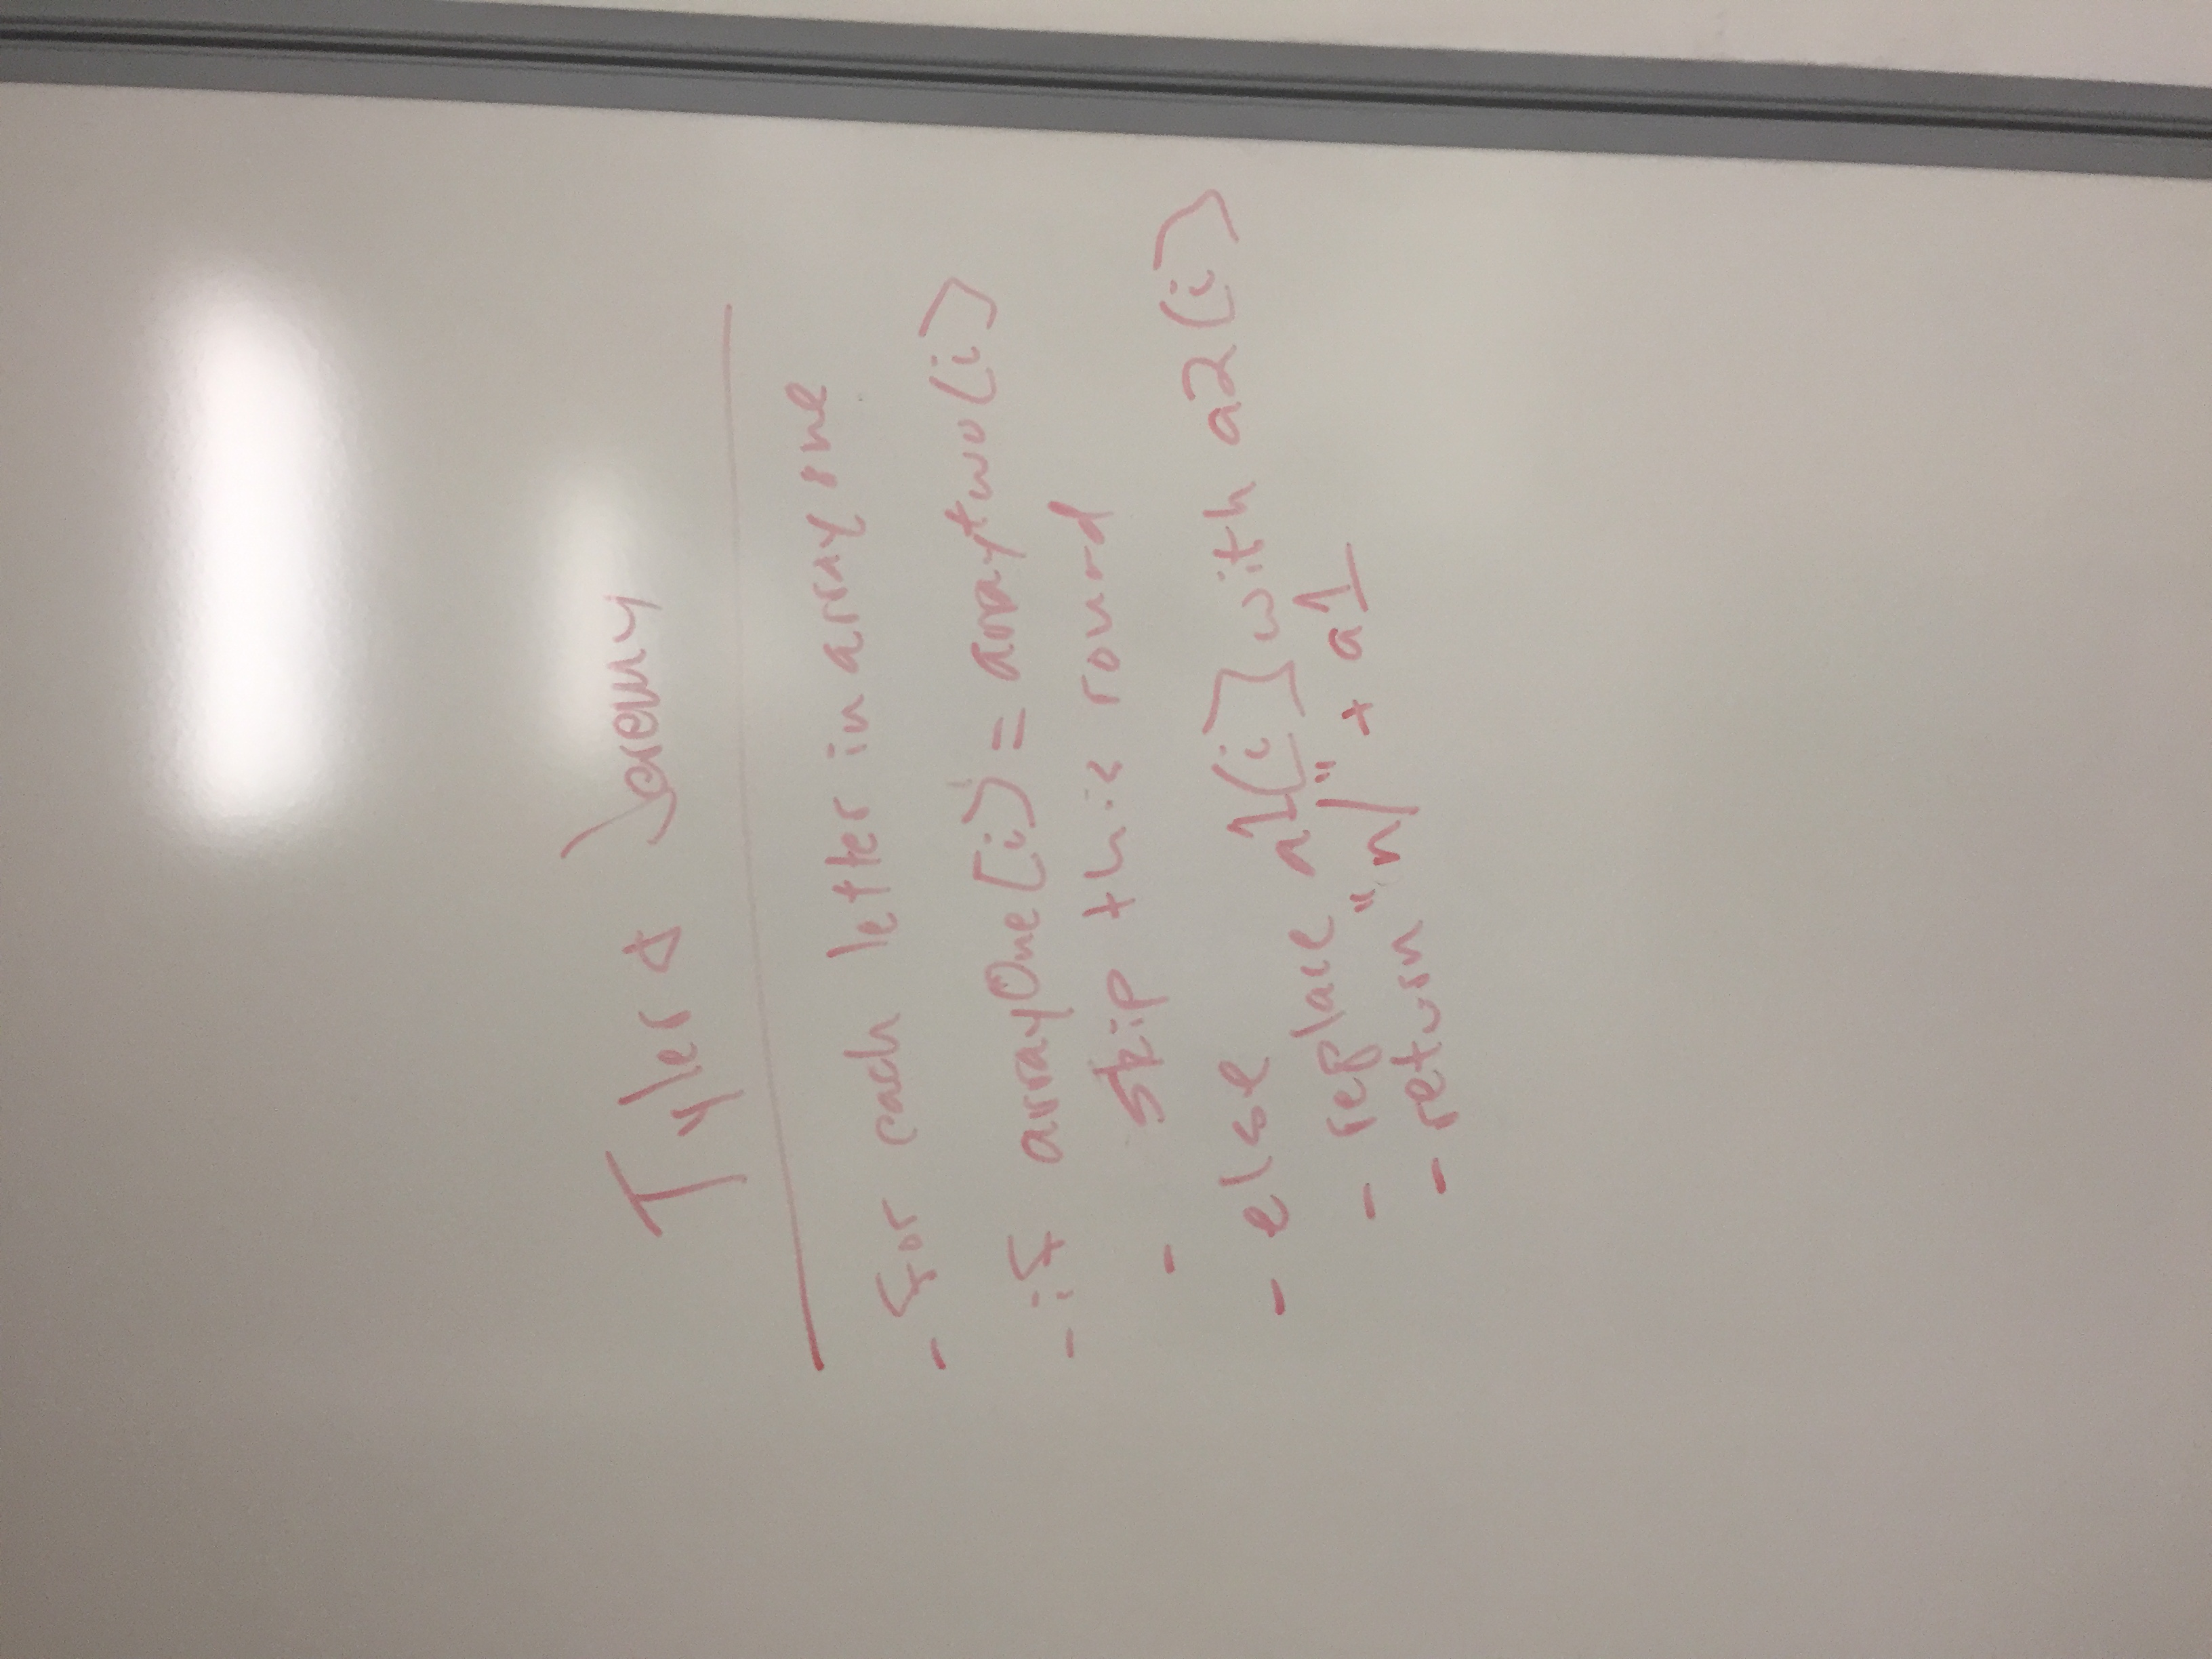 Tyler & Jeremy
- for each letter in array one
- if arrayOne[i] = arraytwo[i]
- skip this round
- else
- replace a1[i] with a2[i]
- return "n/" + a1